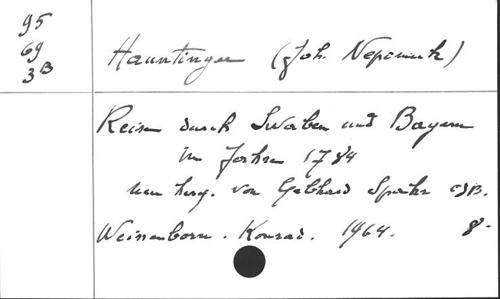 95
69
3B
Hauntinger (Joh. Nepomuk)
Reisen durch Swaben und Bayern
im Jahre 1784
neu hrsg. von Gebhard Spahr OSB.
Weissenhorn. Konrad. 1964. 8-